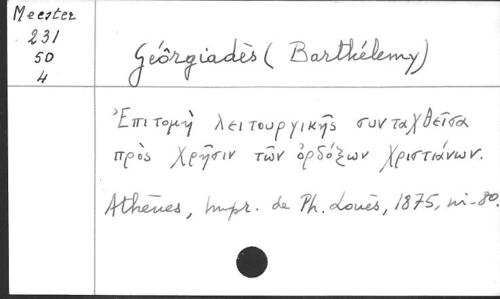 Meester
231
50
4
Géôrgiadès (Barthélemy)
Ἐπιτομὴ λειτουργικῆς συνταχθεῖσα
πρὸς χρῆσιν τῶν ὀρδόξων χριστιάνων.
Athènes, Impr. de Ph. Louès, 1875, in-80.